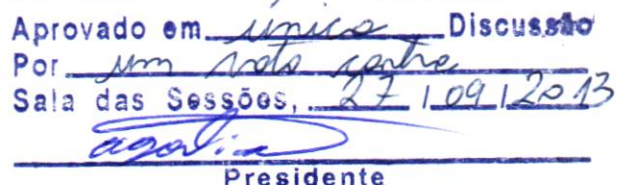 Aprovado em única Discussão
Por um voto contra
Sala das Sessões, 27 / 09 / 2013
Presidente